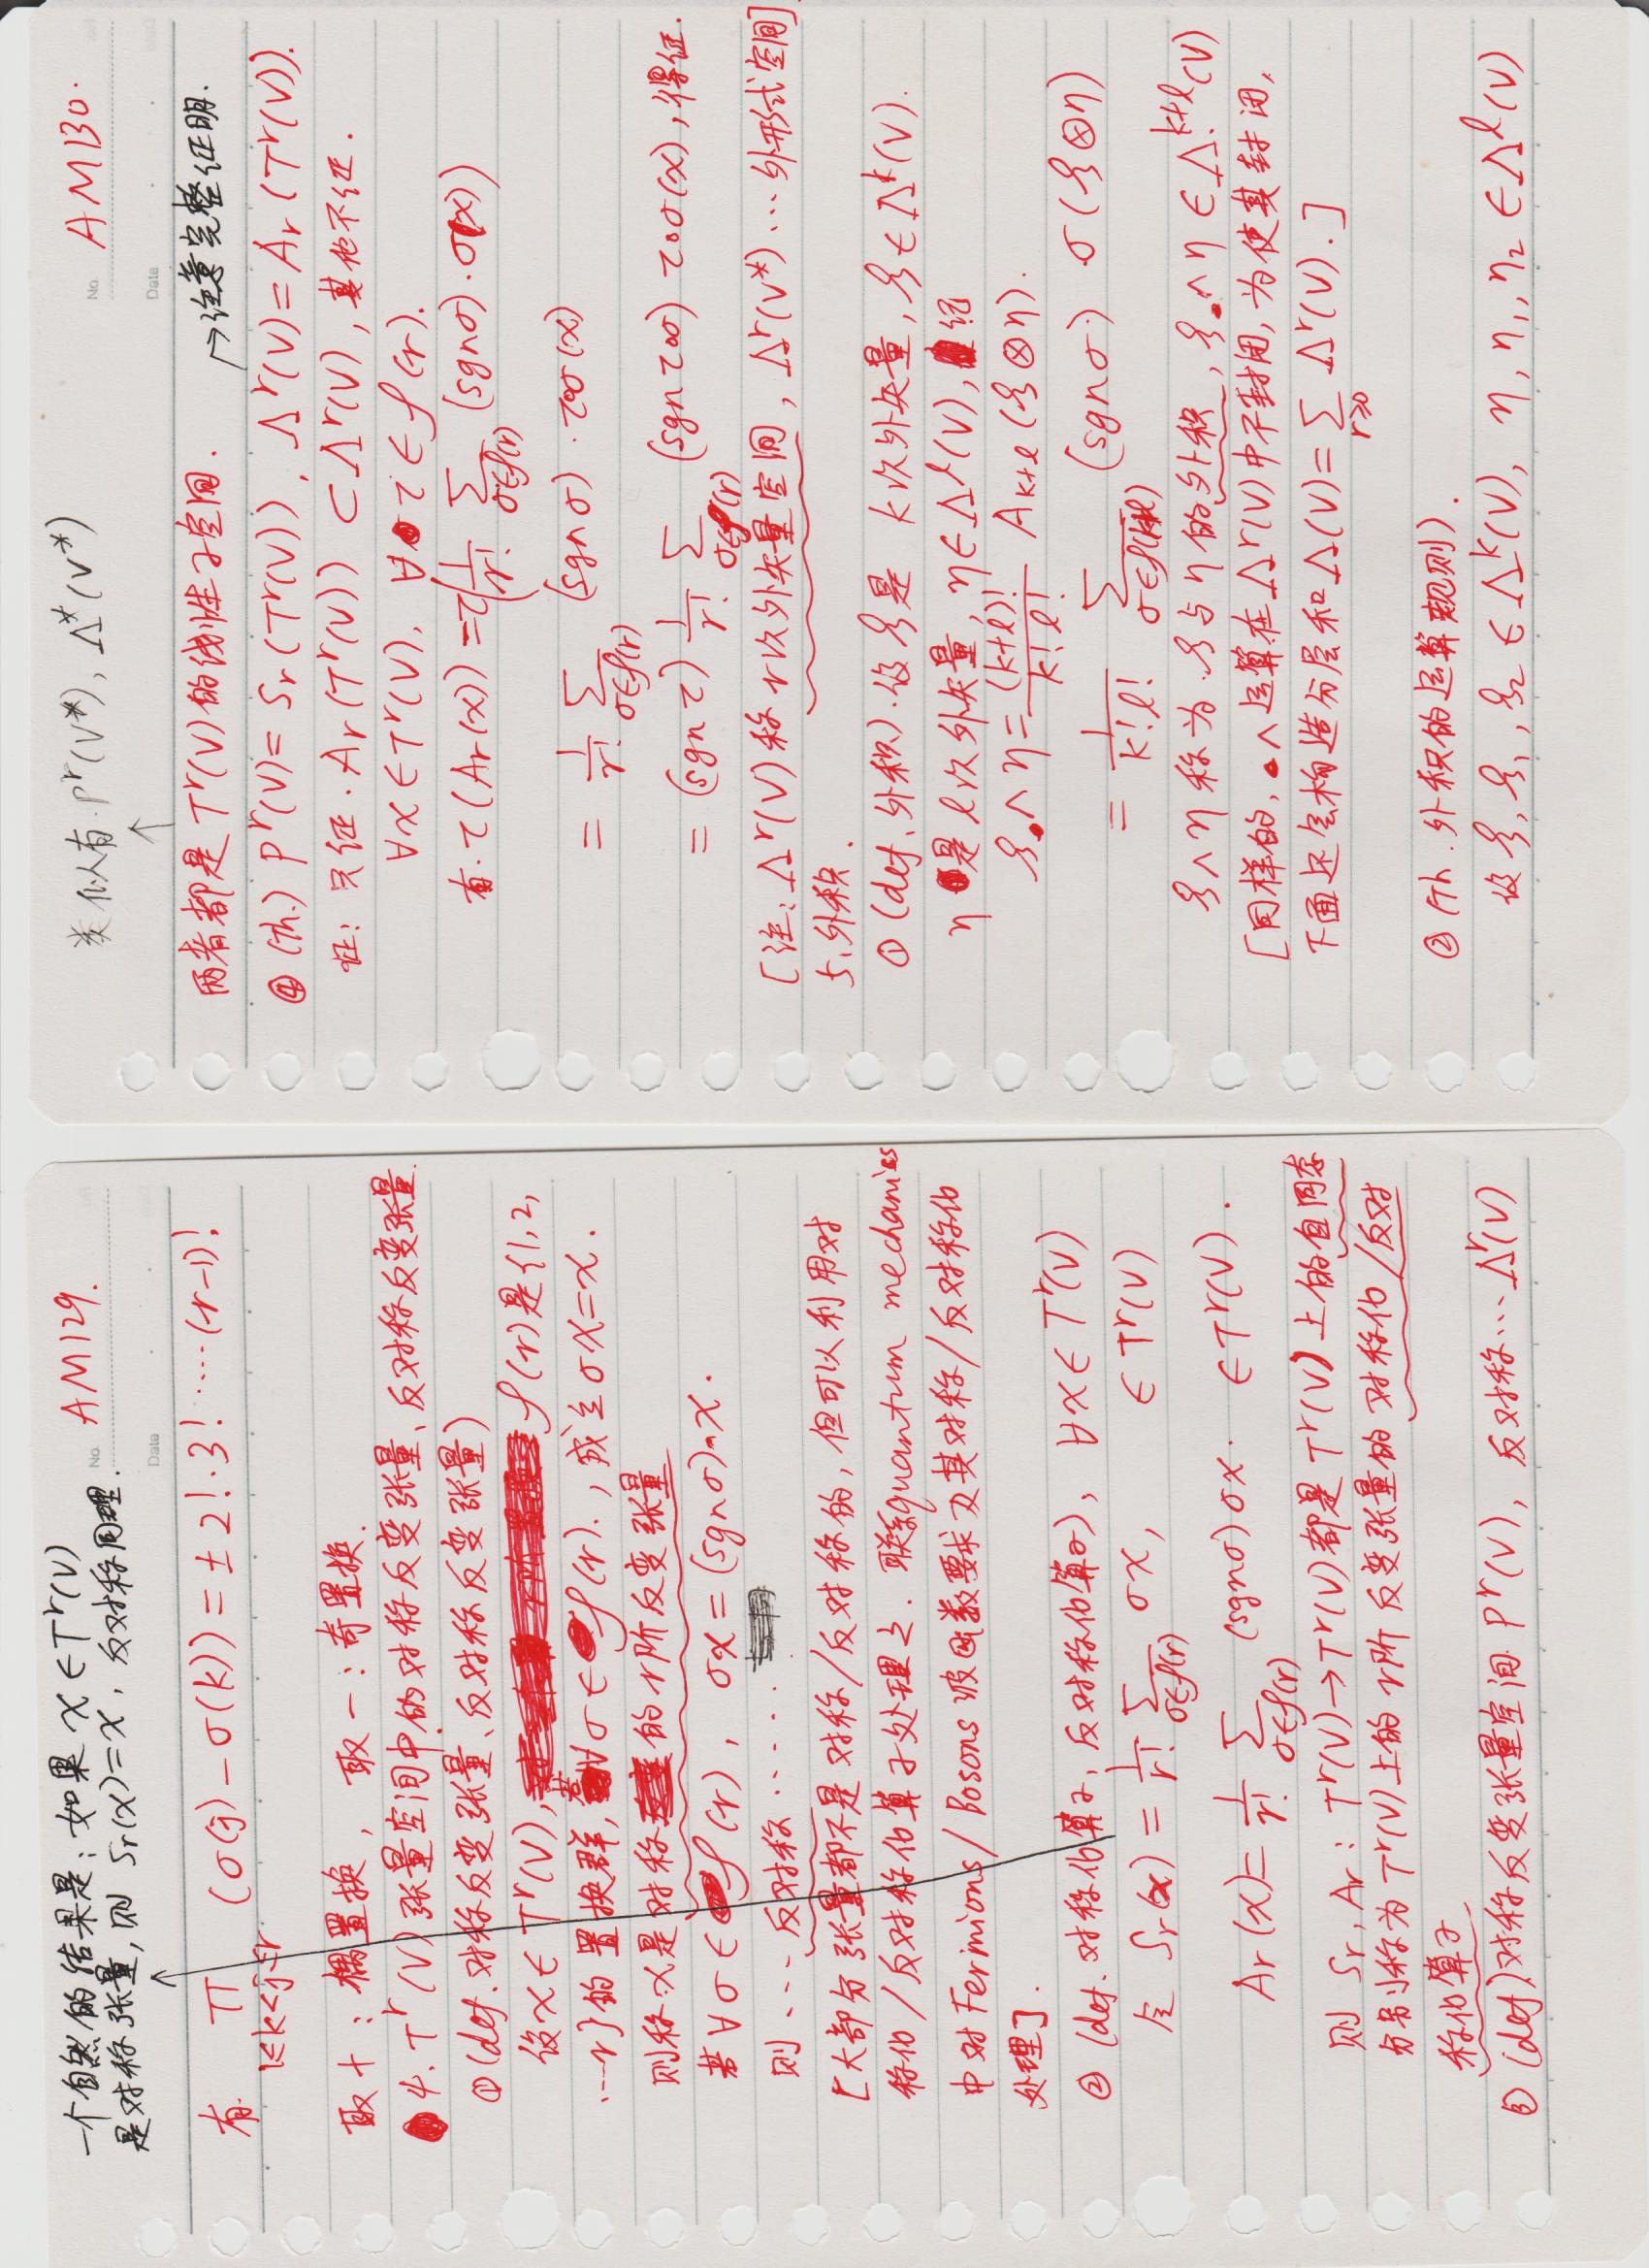 一个自然的结果是：如果 x∈T^r(V)
是对称张量，则 Sr(x)=x，反对称同理.
No. AM129.
Date
有. ∏_{1≤k<j≤r} (σ(j)－σ(k)) = ±2!·3!·····(r-1)!
取＋：偶置换，取－：奇置换.
4. T^r(V)张量空间中的对称反变张量、反对称反变张量.
①(def. 对称反变张量、反对称反变张量)
设x∈T^r(V), 𝒮(r)是{1,2,
…r}的置换群，若∀σ∈𝒮(r).，成立σx=x.
则称x是对称的r阶反变张量
若∀σ∈𝒮(r)，σx=(sgnσ)·x.
则……反对称……
[大部分张量都不是对称/反对称的，但可以利用对
称化/反对称化算子处理之. 联系quantum mechanics
中对Fermions/Bosons波函数要求及其对称/反对称化
处理].
② (def. 对称化算子，反对称化算子)，∀x∈T^r(V)
令 Sr(x) = 1/r! ∑_{σ∈𝒮(r)} σx, ∈T^r(V)
Ar(x) = 1/r! ∑_{σ∈𝒮(r)} (sgnσ)σx. ∈T^r(V).
则 Sr, Ar：T^r(V)→T^r(V)都是T^r(V)上的自同态
分别称为T^r(V)上的r阶反变张量的对称化/反对
称化算子
③ (def.)对称反变张量空间P^r(V)，反对称…Λ^r(V)
类似有.P^r(V*), Λ*(V*)
No. AM130.
Date
两者都是T^r(V)的线性子空间.
→注意完整证明.
④ (th.) P^r(V)=Sr(T^r(V)), Λ^r(V)=Ar(T^r(V)).
证：只证.Ar(T^r(V))⊂Λ^r(V)，其他不证.
∀x∈T^r(V), ∀τ∈𝒮(r).
有.τ(Ar(x))=τ(1/r! ∑_{σ∈𝒮(r)} (sgnσ)·σ(x))
= 1/r! ∑_{σ∈𝒮(r)} (sgnσ)·τ∘σ(x)
= (sgnτ) 1/r! ∑_{σ∈𝒮(r)} (sgnτ∘σ) τ∘σ(x)，得证.
[注：Λ^r(V)称r次外矢量空间，Λ^r(V*)…外形式空间]
5.外积.
① (def. 外积).设ξ是 k次外矢量，ξ∈Λ^k(V).
η是l次外矢量，η∈Λ^l(V)，记
ξ∧η = (k+l)!/k!l! A_{k+l}(ξ⊗η).
= 1/k!l! ∑_{σ∈𝒮(k+l)} (sgnσ) σ(ξ⊗η)
ξ∧η称为ξ与η的外积，ξ∧η∈Λ^{k+l}(V)
[同样的，∧运算在Λ^r(V)中不封闭，为使其封闭，
下面还会构造分层和Λ(V)=∑_{r≥0} Λ^r(V).]
② (th. 外积的运算规则).
设ξ, ξ₁, ξ₂∈Λ^k(V), η, η₁, η₂∈Λ^l(V)